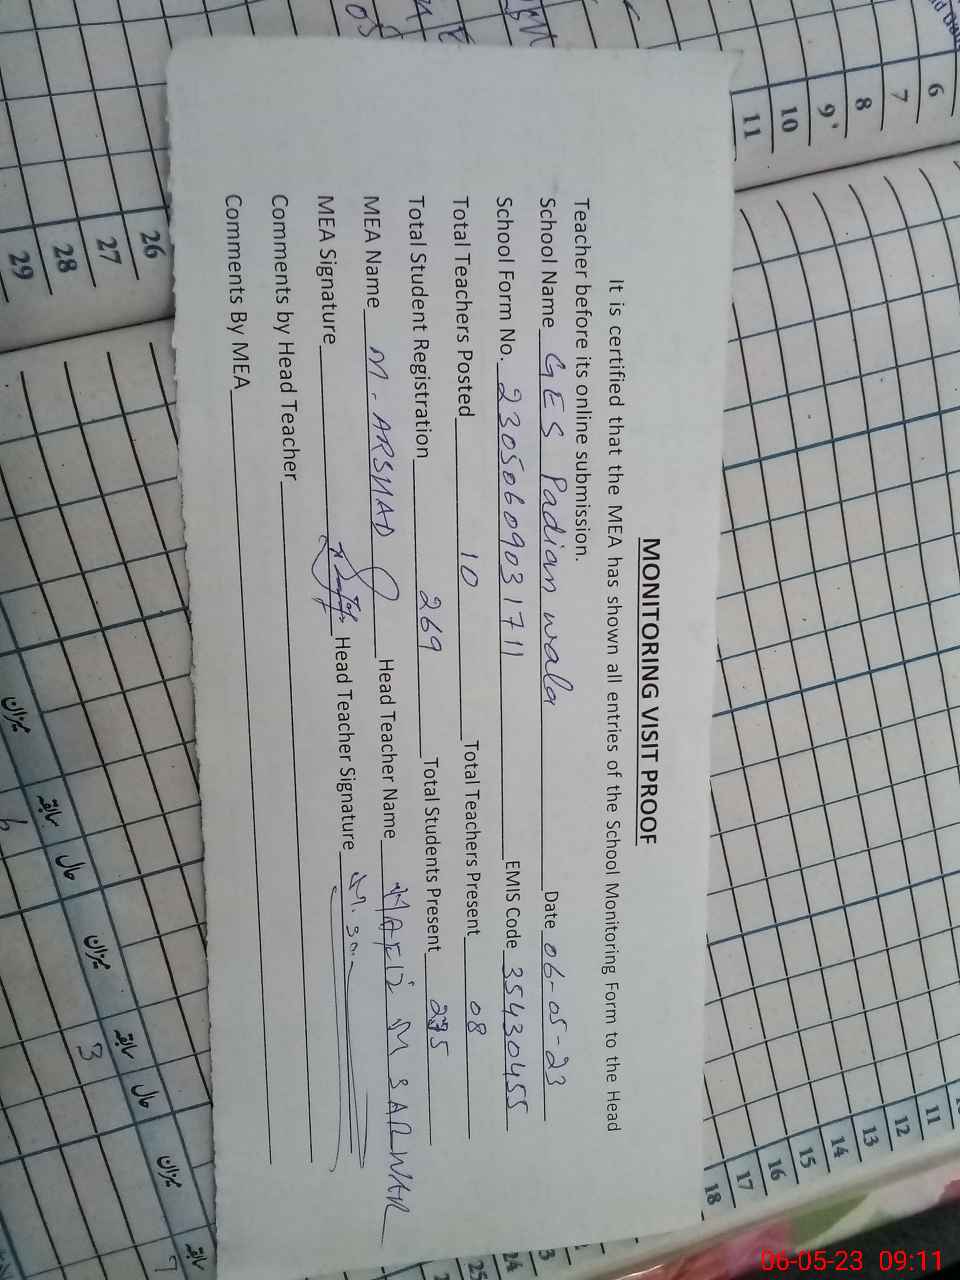 MONITORING VISIT PROOF
It is certified that the MEA has shown all entries of the School Monitoring Form to the Head
Teacher before its online submission.
School Name GES Padian wala Date 06-05-23
School Form No. 2305060903 1711 EMIS Code 35430455
Total Teachers Posted 10 Total Teachers Present 08
Total Student Registration 269 Total Students Present
MEA Name M-ARSHAD Head Teacher Name M SARWAR
MEA Signature Head Teacher Signature
Comments by Head Teacher
Comments By MEA
6
7
8
9
10
11
26
27
28
29
11
12
13
14
15
16
17
18
میزان
سابقہ
حال
میزان
سابقہ
حال
میزان
سابقہ
3
06-05-23 09:11